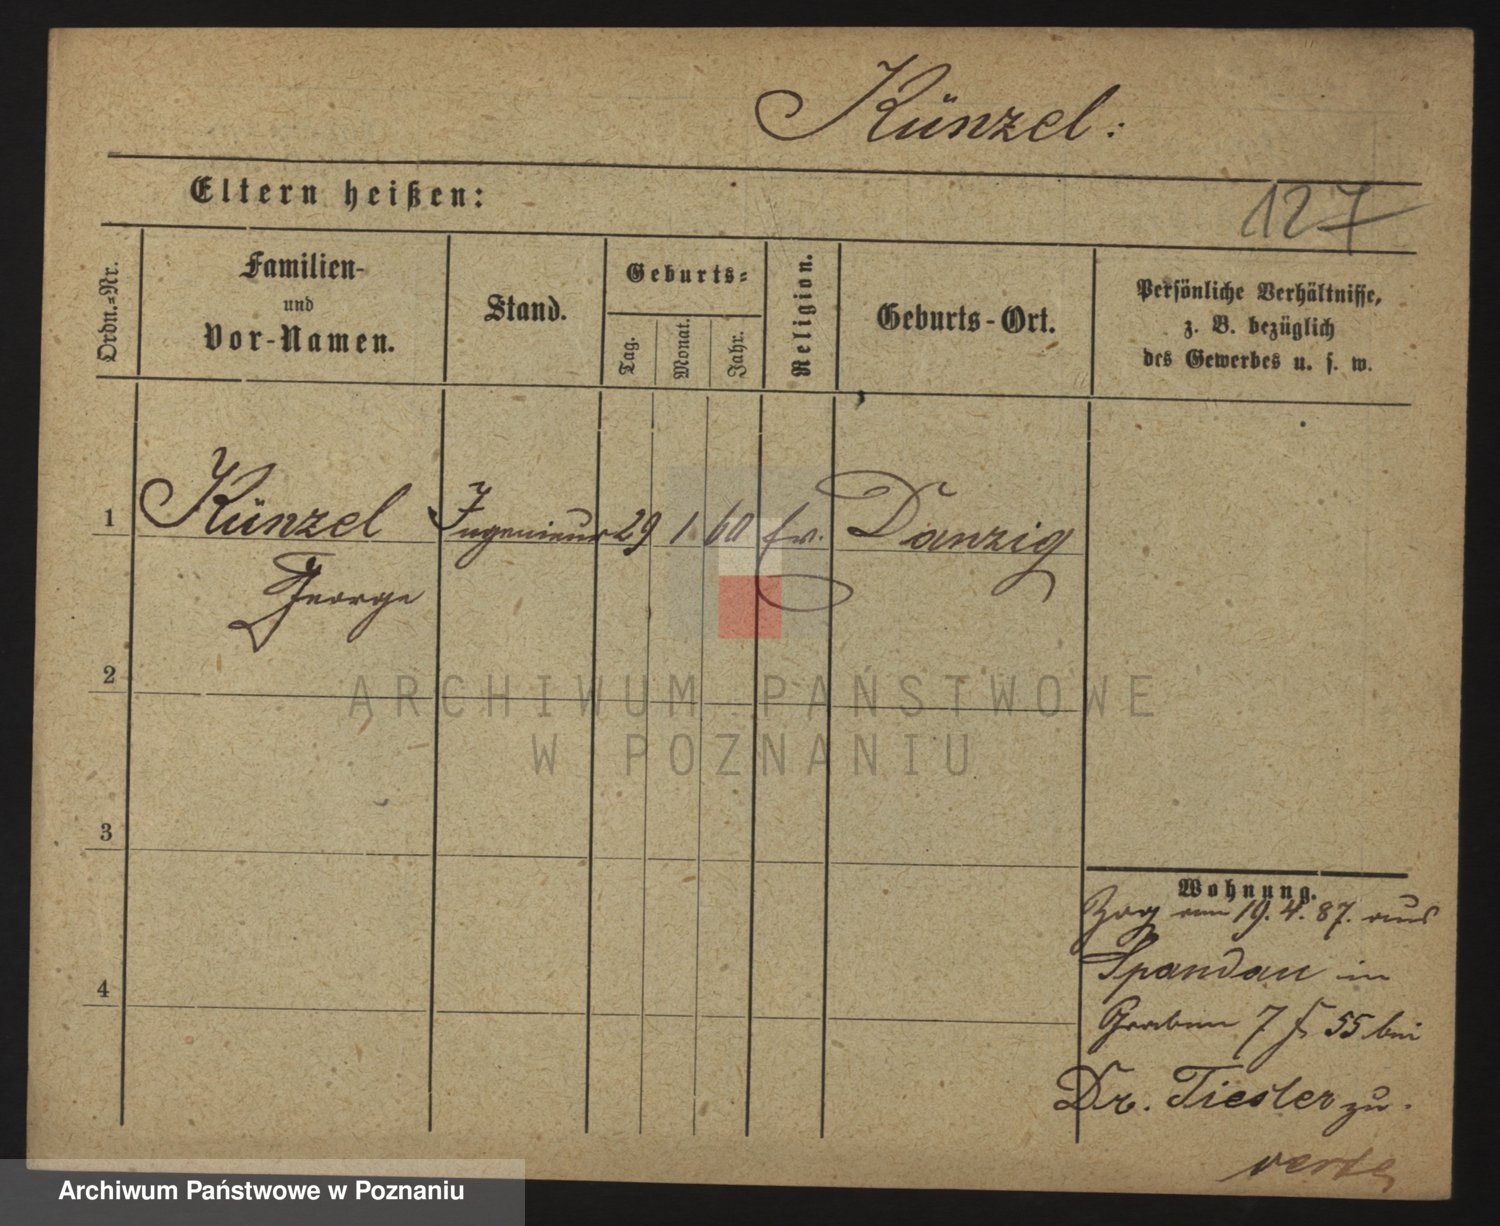 Künzel:
Eltern heißen:
127
Ordn.=Nr.
Familien-
und
Vor-Namen.
Stand.
Geburts=
Tag.
Monat.
Jahr.
Religion.
Geburts-Ort.
Persönliche Verhältnisse,
z. B. bezüglich
des Gewerbes u. s. w.
1 Künzel Ingenieur 29 1 60 ev. Danzig
George
2
3
4
Wohnung.
Zog am 19.4.87. aus
Spandau in
Graben 7 55 bei
Dr. Tiesler zu.
verte
ARCHIWUM PAŃSTWOWE
W POZNANIU
Archiwum Państwowe w Poznaniu